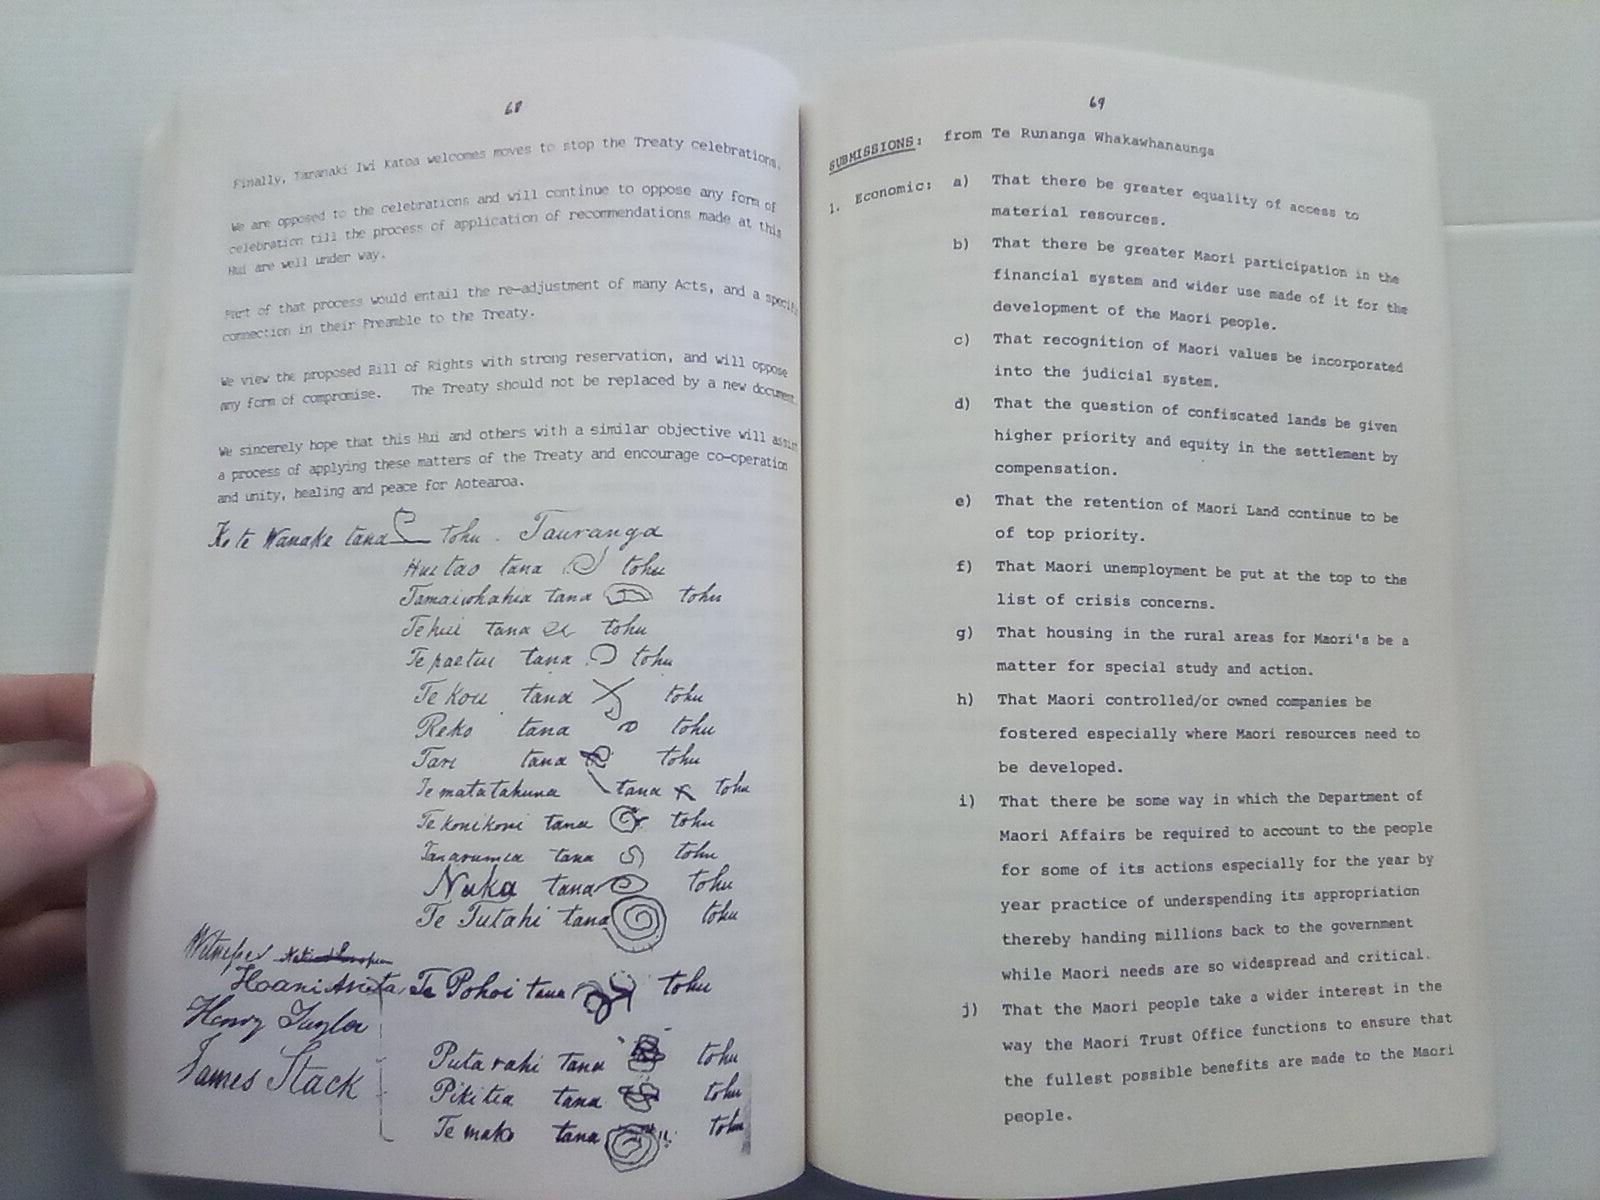 68
Finally, Taranaki Iwi Katoa welcomes moves to stop the Treaty celebrations.
We are opposed to the celebrations and will continue to oppose any form of
celebration till the process of application of recommendations made at this
Hui are well under way.
Part of that process would entail the re-adjustment of many Acts, and a specific
connection in their Preamble to the Treaty.
We view the proposed Bill of Rights with strong reservation, and will oppose
any form of compromise. The Treaty should not be replaced by a new document.
We sincerely hope that this Hui and others with a similar objective will assist
a process of applying these matters of the Treaty and encourage co-operation
and unity, healing and peace for Aotearoa.
Ko te Wanaka tana tohu. Tauranga
Huitao tana tohu
Tamaiwhahia tana tohu
Te hui tana tohu
Te paetui tana tohu
Te Kou tana tohu
Reko tana tohu
Tari tana tohu
Te matatahuna tana tohu
Te konikoni tana tohu
tana tohu
Nuka tana tohu
Te Tutahi tana tohu
Witnesses
Hoani Te Pohoi tana tohu
Henry Taylor
James Stack
Putarahi tana tohu
Pikitia tana tohu
Te mako tana tohu
69
SUBMISSIONS: from Te Runanga Whakawhanaunga
1. Economic: a) That there be greater equality of access to
material resources.
b) That there be greater Maori participation in the
financial system and wider use made of it for the
development of the Maori people.
c) That recognition of Maori values be incorporated
into the judicial system.
d) That the question of confiscated lands be given
higher priority and equity in the settlement by
compensation.
e) That the retention of Maori Land continue to be
of top priority.
f) That Maori unemployment be put at the top to the
list of crisis concerns.
g) That housing in the rural areas for Maori's be a
matter for special study and action.
h) That Maori controlled/or owned companies be
fostered especially where Maori resources need to
be developed.
i) That there be some way in which the Department of
Maori Affairs be required to account to the people
for some of its actions especially for the year by
year practice of underspending its appropriation
thereby handing millions back to the government
while Maori needs are so widespread and critical.
j) That the Maori people take a wider interest in the
way the Maori Trust Office functions to ensure that
the fullest possible benefits are made to the Maori
people.